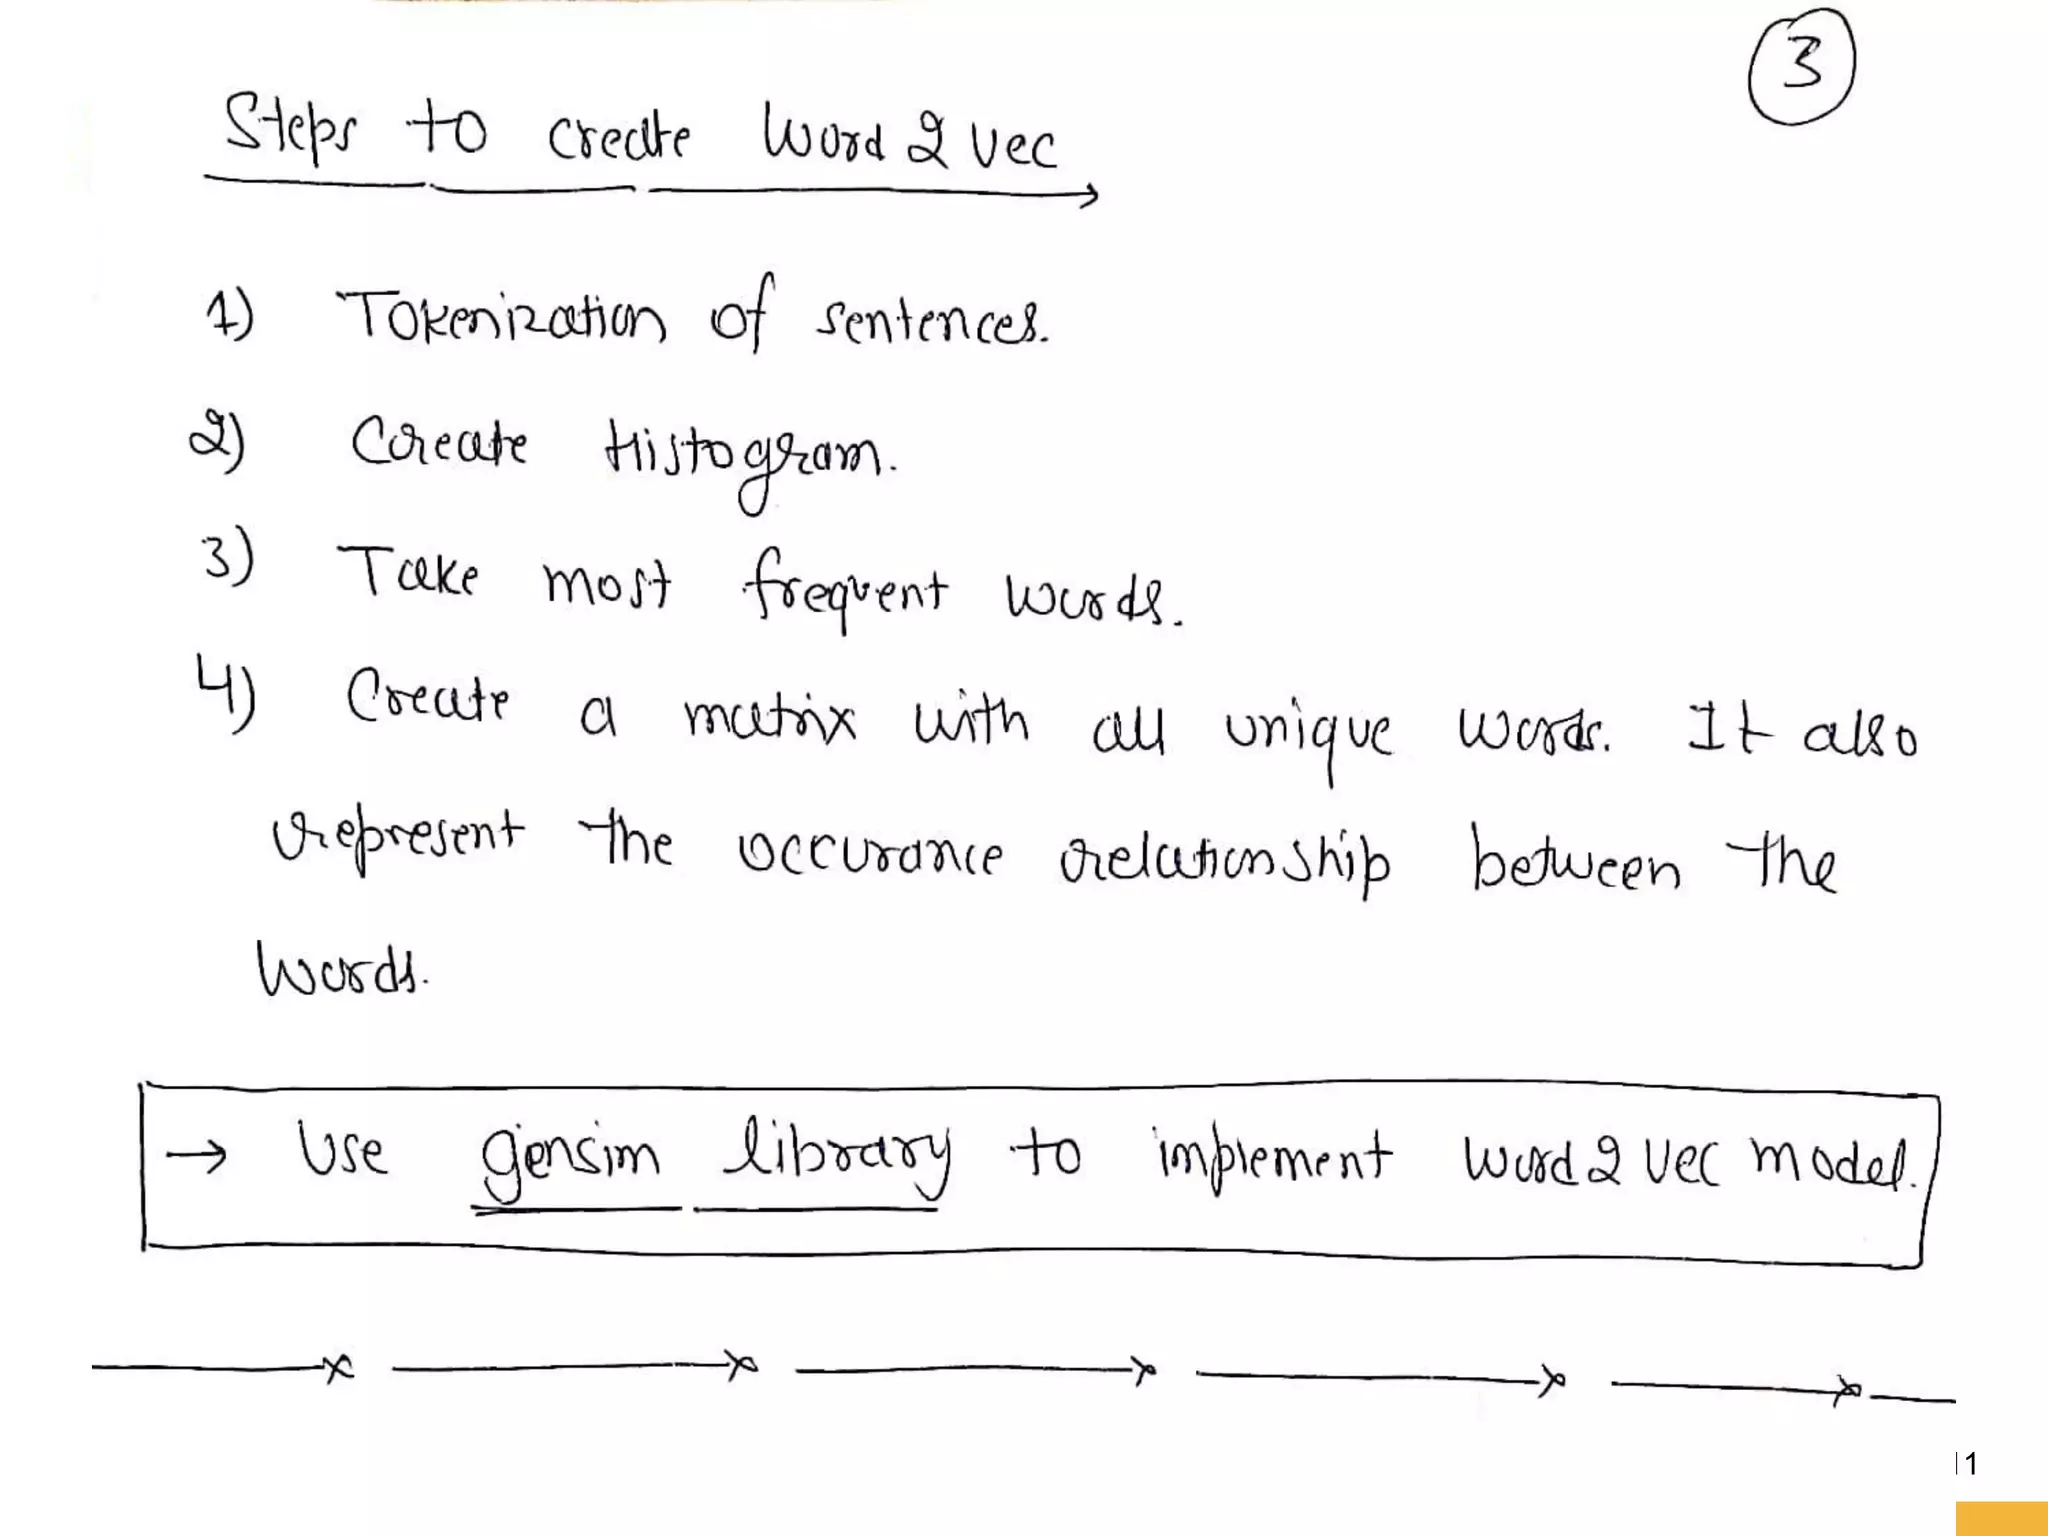 3
Steps to create Word2vec
1) Tokenization of sentences.
2) Create Histogram.
3) Take most frequent words.
4) Create a matrix with all unique words. It also
represent the occurance relationship between the
words.
→ Use gensim library to implement word2vec model.
11